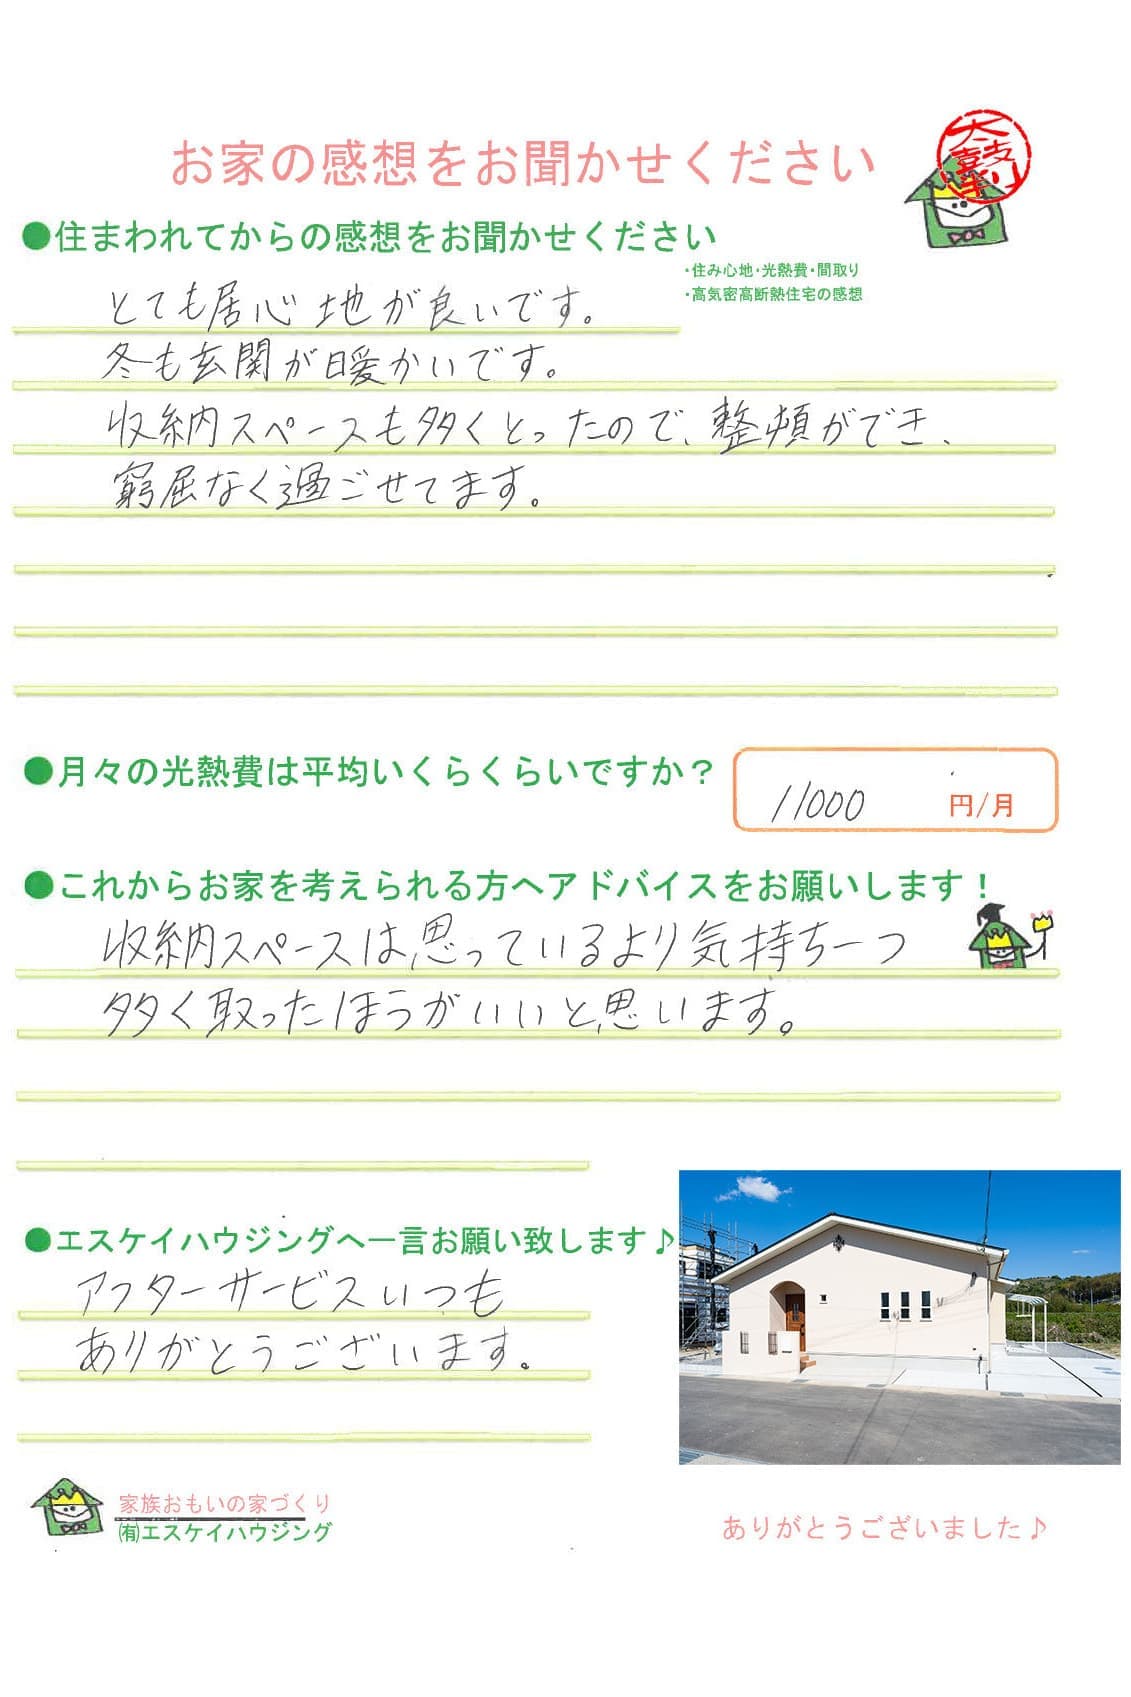 お家の感想をお聞かせください
●住まわれてからの感想をお聞かせください
・住み心地・光熱費・間取り
・高気密高断熱住宅の感想
とても居心地が良いです。
冬も玄関が暖かいです。
収納スペースも多くとったので、整頓ができ、
窮屈なく過ごせてます。
●月々の光熱費は平均いくらくらいですか？
11000 円/月
●これからお家を考えられる方へアドバイスをお願いします！
収納スペースは、思っているより気持ち一つ
多く取ったほうがいいと思います。
●エスケイハウジングへ一言お願い致します♪
アフターサービスいつも
ありがとうございます。
家族おもいの家づくり
㈲エスケイハウジング
ありがとうございました♪